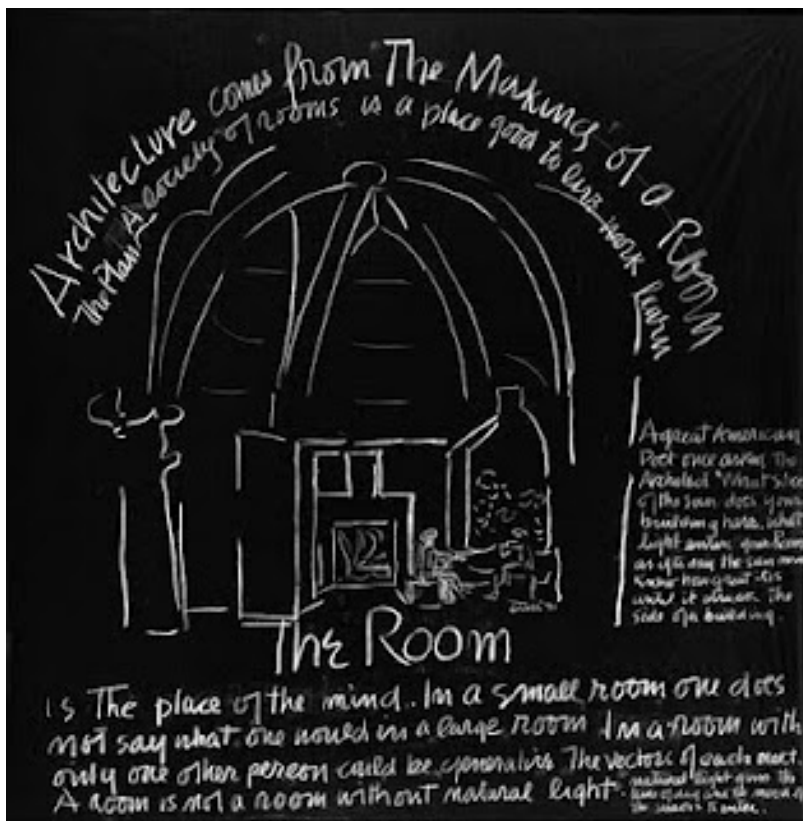 Architecture comes from The Making of a Room
The Plan A society of rooms is a place good to live work learn
A great American
Poet once asked the
Architect "What slice
of the sun does your
building have, what
light enters your Room
as if to say the sun never
knew how great it is
until it struck the
side of a building.
The Room
is The place of the mind. In a small room one does
not say what one would in a large room In a room with
only one other person could be generative The vectors of each meet.
A room is not a room without natural light.
natural light gives the
time of day and the mood of
the seasons to enter.